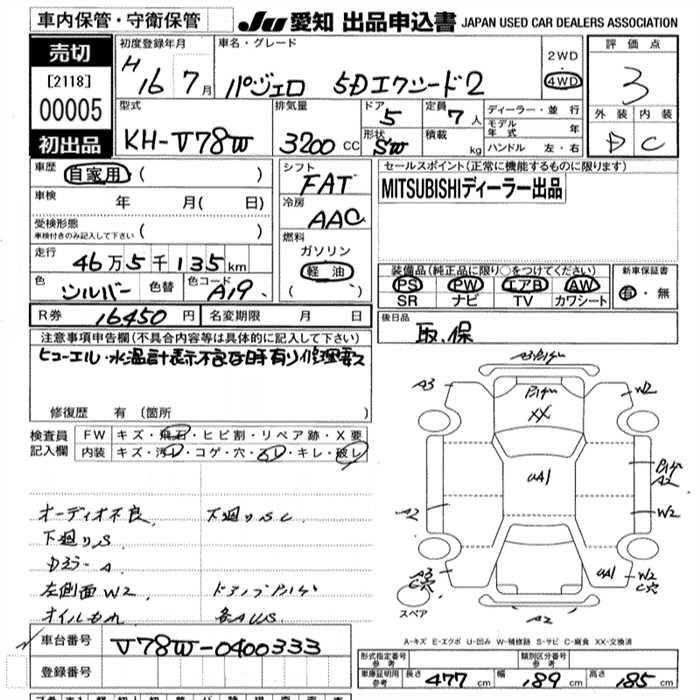 車内保管・守衛保管
JU 愛知 出品申込書 JAPAN USED CAR DEALERS ASSOCIATION
売切
[2118]
00005
初出品
初度登録年月
H 16 7月
車名・グレード
パジェロ 5Dエクシード2
2WD
4WD
評価点
3
外装 内装
D C
型式
KH-V78W
排気量
3200 CC
ドア
5
形状
SW
定員
7人
積載
kg
ディーラー・並行
モデル年式 年
ハンドル 左・右
車歴
自家用 ( )
車検
年 月( 日)
受検形態
車検付きのみ記入して下さい ( )
走行
46万5千135km
色
シルバー
色替
色コード
A19
シフト
FAT
冷房
AAC
燃料
ガソリン
軽油
( )
セールスポイント(正常に機能するものに限ります)
MITSUBISHIディーラー出品
装備品(純正品に限り○をつけてください)
PS PW エアB AW
SR ナビ TV カワシート
新車保証書
有・無
R券 16450円
名変期限 月 日
後日品
取.保
注意事項申告欄(不具合内容等は具体的に記入して下さい)
ヒューエル・水温計表示不良な時有り修理要ス
修復歴 有(箇所 )
検査員記入欄
FW キズ・飛石・ヒビ割・リペア跡・X要
内装 キズ・汚レ・コゲ・穴・スレ・キレ・破レ
オーディオ不良 下廻りSC
下廻りS
左側面W2
各AUS
車台番号
V78W-0400333
登録番号
A3
W2
XX
UA1
A2
A2
W2
A3
C穴
UA1
W2
C穴
スペア
A2
A-キズ E-エクボ U-凹み W-補修跡 S-サビ C-腐食 XX-交換済
形式指定番号
参考
類別区分番号
参考
車庫証明用
参考
長さ 477cm
幅 189cm
高さ 185cm